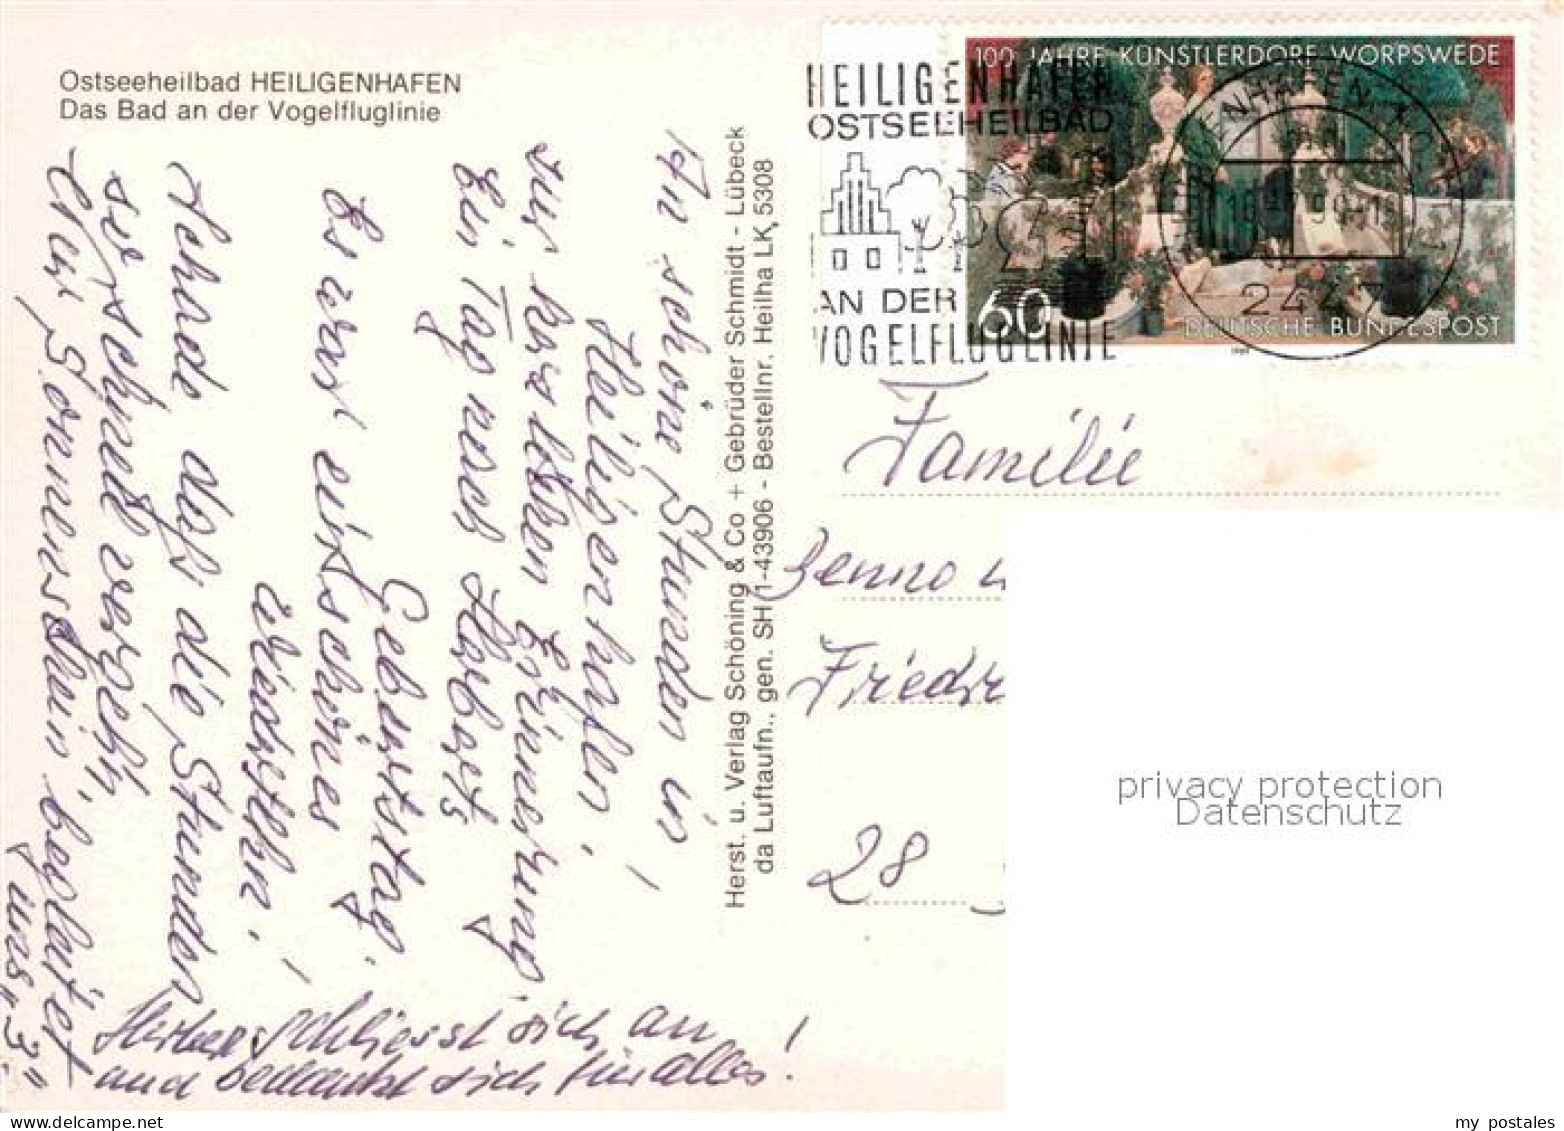 Ostseeheilbad HEILIGENHAFEN
Das Bad an der Vogelfluglinie
An schöne Stunden in
Heiligenhafen,
zur herzlichen Erinnerung,
Ein Tag nach Herberts
Geburtstag.
Es war ein schönes
Wiedersehn!
Schade daß die Stunden
so schnell vergehn
Nur Sonnenschein begleitet
uns "3"
Herbert schliesst sich an
und bedankt sich für alles!
Herst. u. Verlag Schöning & Co + Gebrüder Schmidt - Lübeck
da Luftaufn., gen. SH 1-43906 - Bestellnr. Heilha LK 5308
HEILIGENHAFEN
OSTSEEHEILBAD
AN DER
VOGELFLUGLINIE
100 JAHRE KÜNSTLERDORF WORPSWEDE
60
DEUTSCHE BUNDESPOST
1989
2447
Familie
Benno u
Friedr
28
privacy protection
Datenschutz
my postales